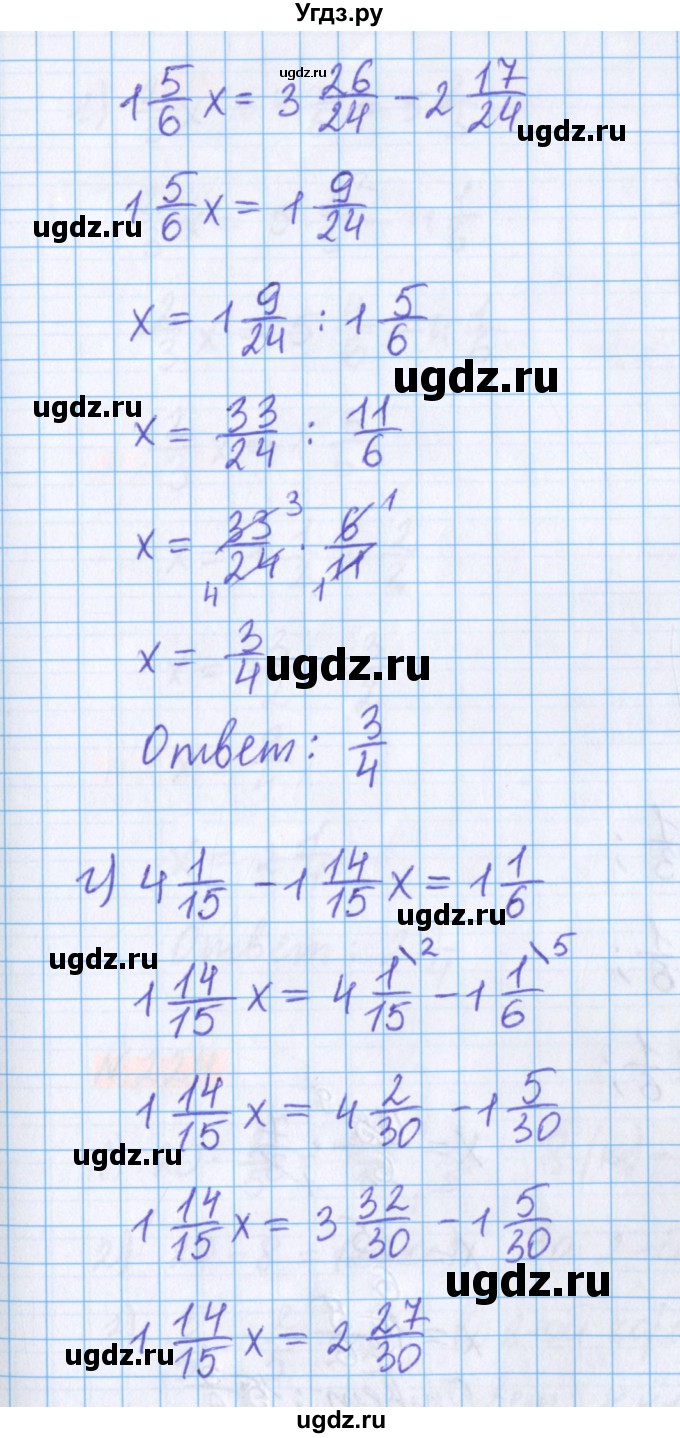 Угдз.ру
ugdz.ru
1 5/6 x = 3 26/24 - 2 17/24
ugdz.ru
1 5/6 x = 1 9/24
ugdz.ru
x = 1 9/24 : 1 5/6
ugdz.ru
ugdz.ru
x = 33/24 : 11/6
x = 33/24 · 6/11 3 1 4 1
x = 3/4
ugdz.ru
Ответ: 3/4
г) 4 1/15 - 1 14/15 x = 1 1/6
ugdz.ru
ugdz.ru
1 14/15 x = 4 1\2/15 - 1 1\5/6
1 14/15 x = 4 2/30 - 1 5/30
ugdz.ru
1 14/15 x = 3 32/30 - 1 5/30
ugdz.ru
1 14/15 x = 2 27/30
ugdz.ru
ugdz.ru